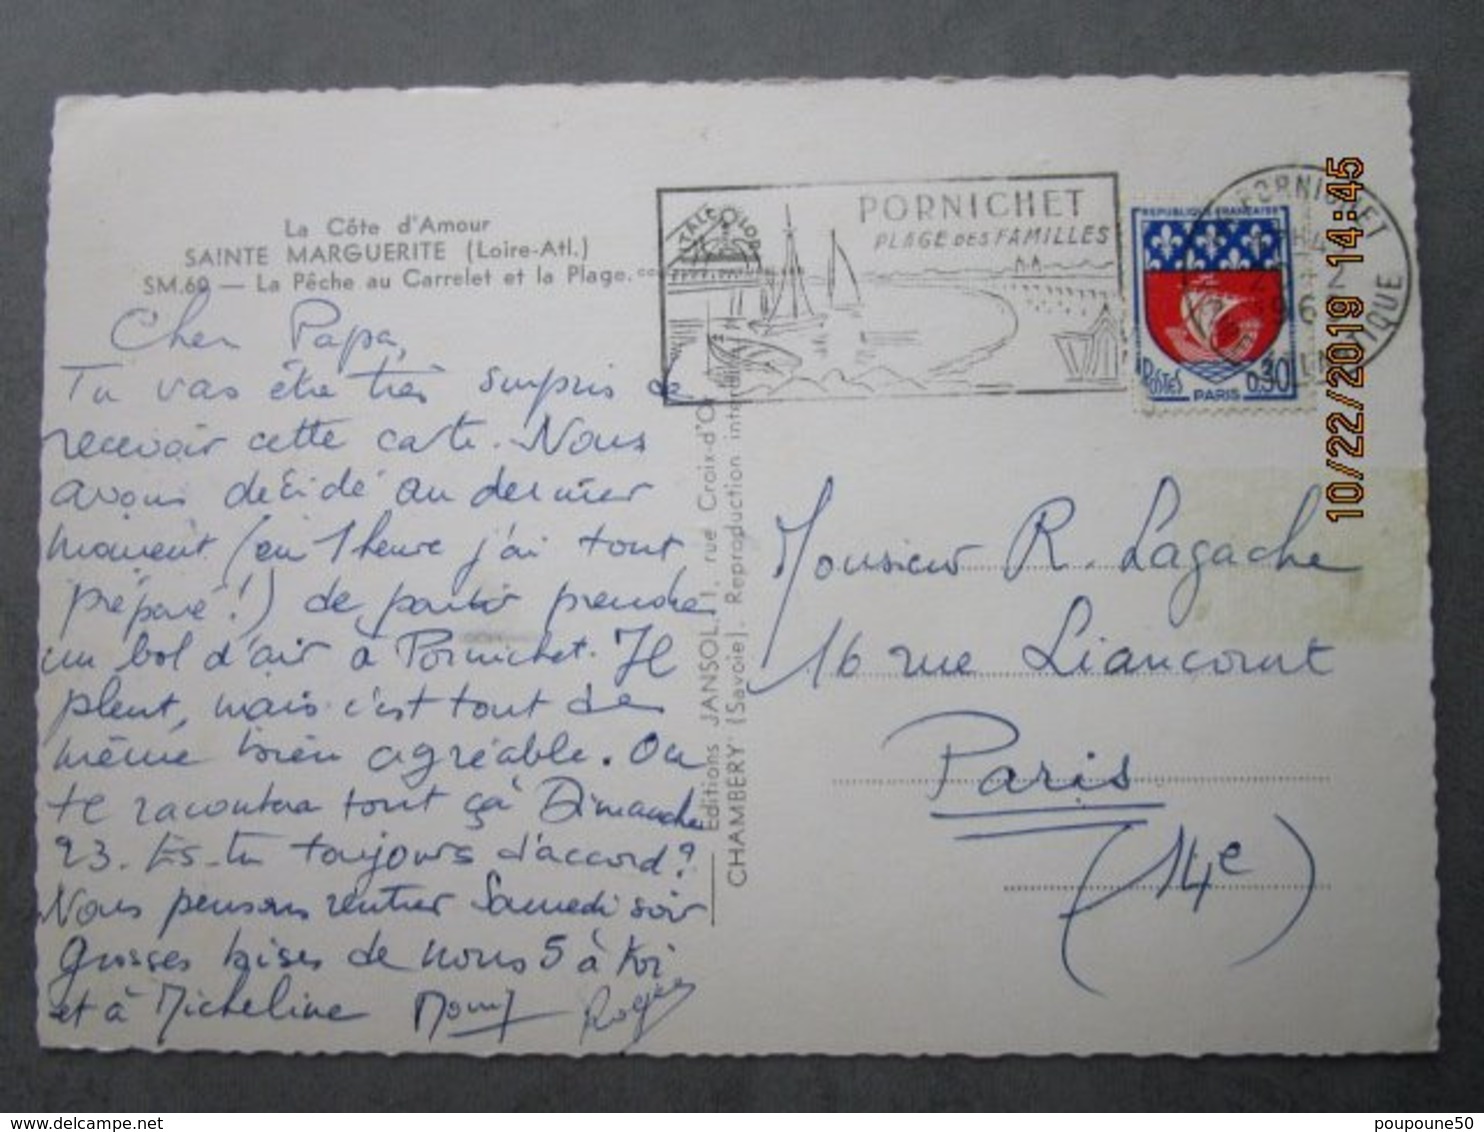 La Côte d'Amour
SAINTE MARGUERITE (Loire-Atl.)
SM.60 — La Pêche au Carrelet et la Plage.
Cher Papa,
Tu vas être très surpris de
recevoir cette carte. Nous
avons décidé au dernier
moment (en 1 heure j'ai tout
préparé!) de partir prendre
un bol d'air à Pornichet. Il
pleut, mais c'est tout de
même bien agréable. On
te racontera tout ça Dimanche
23. Es-tu toujours d'accord?
Nous pensons rentrer Samedi soir
Grosses bises de nous 5 à toi
et à Micheline Roger
Editions JANSOL, 1, rue Croix-d'Or
CHAMBERY (Savoie). Reproduction interdite
PORNICHET
PLAGE DES FAMILLES
REPUBLIQUE FRANÇAISE
POSTES
0,30
PARIS
PORNICHET
10/22/2019 14:45
Monsieur R. Lagache
16 rue Liancourt
Paris
(14e)
poupoune50